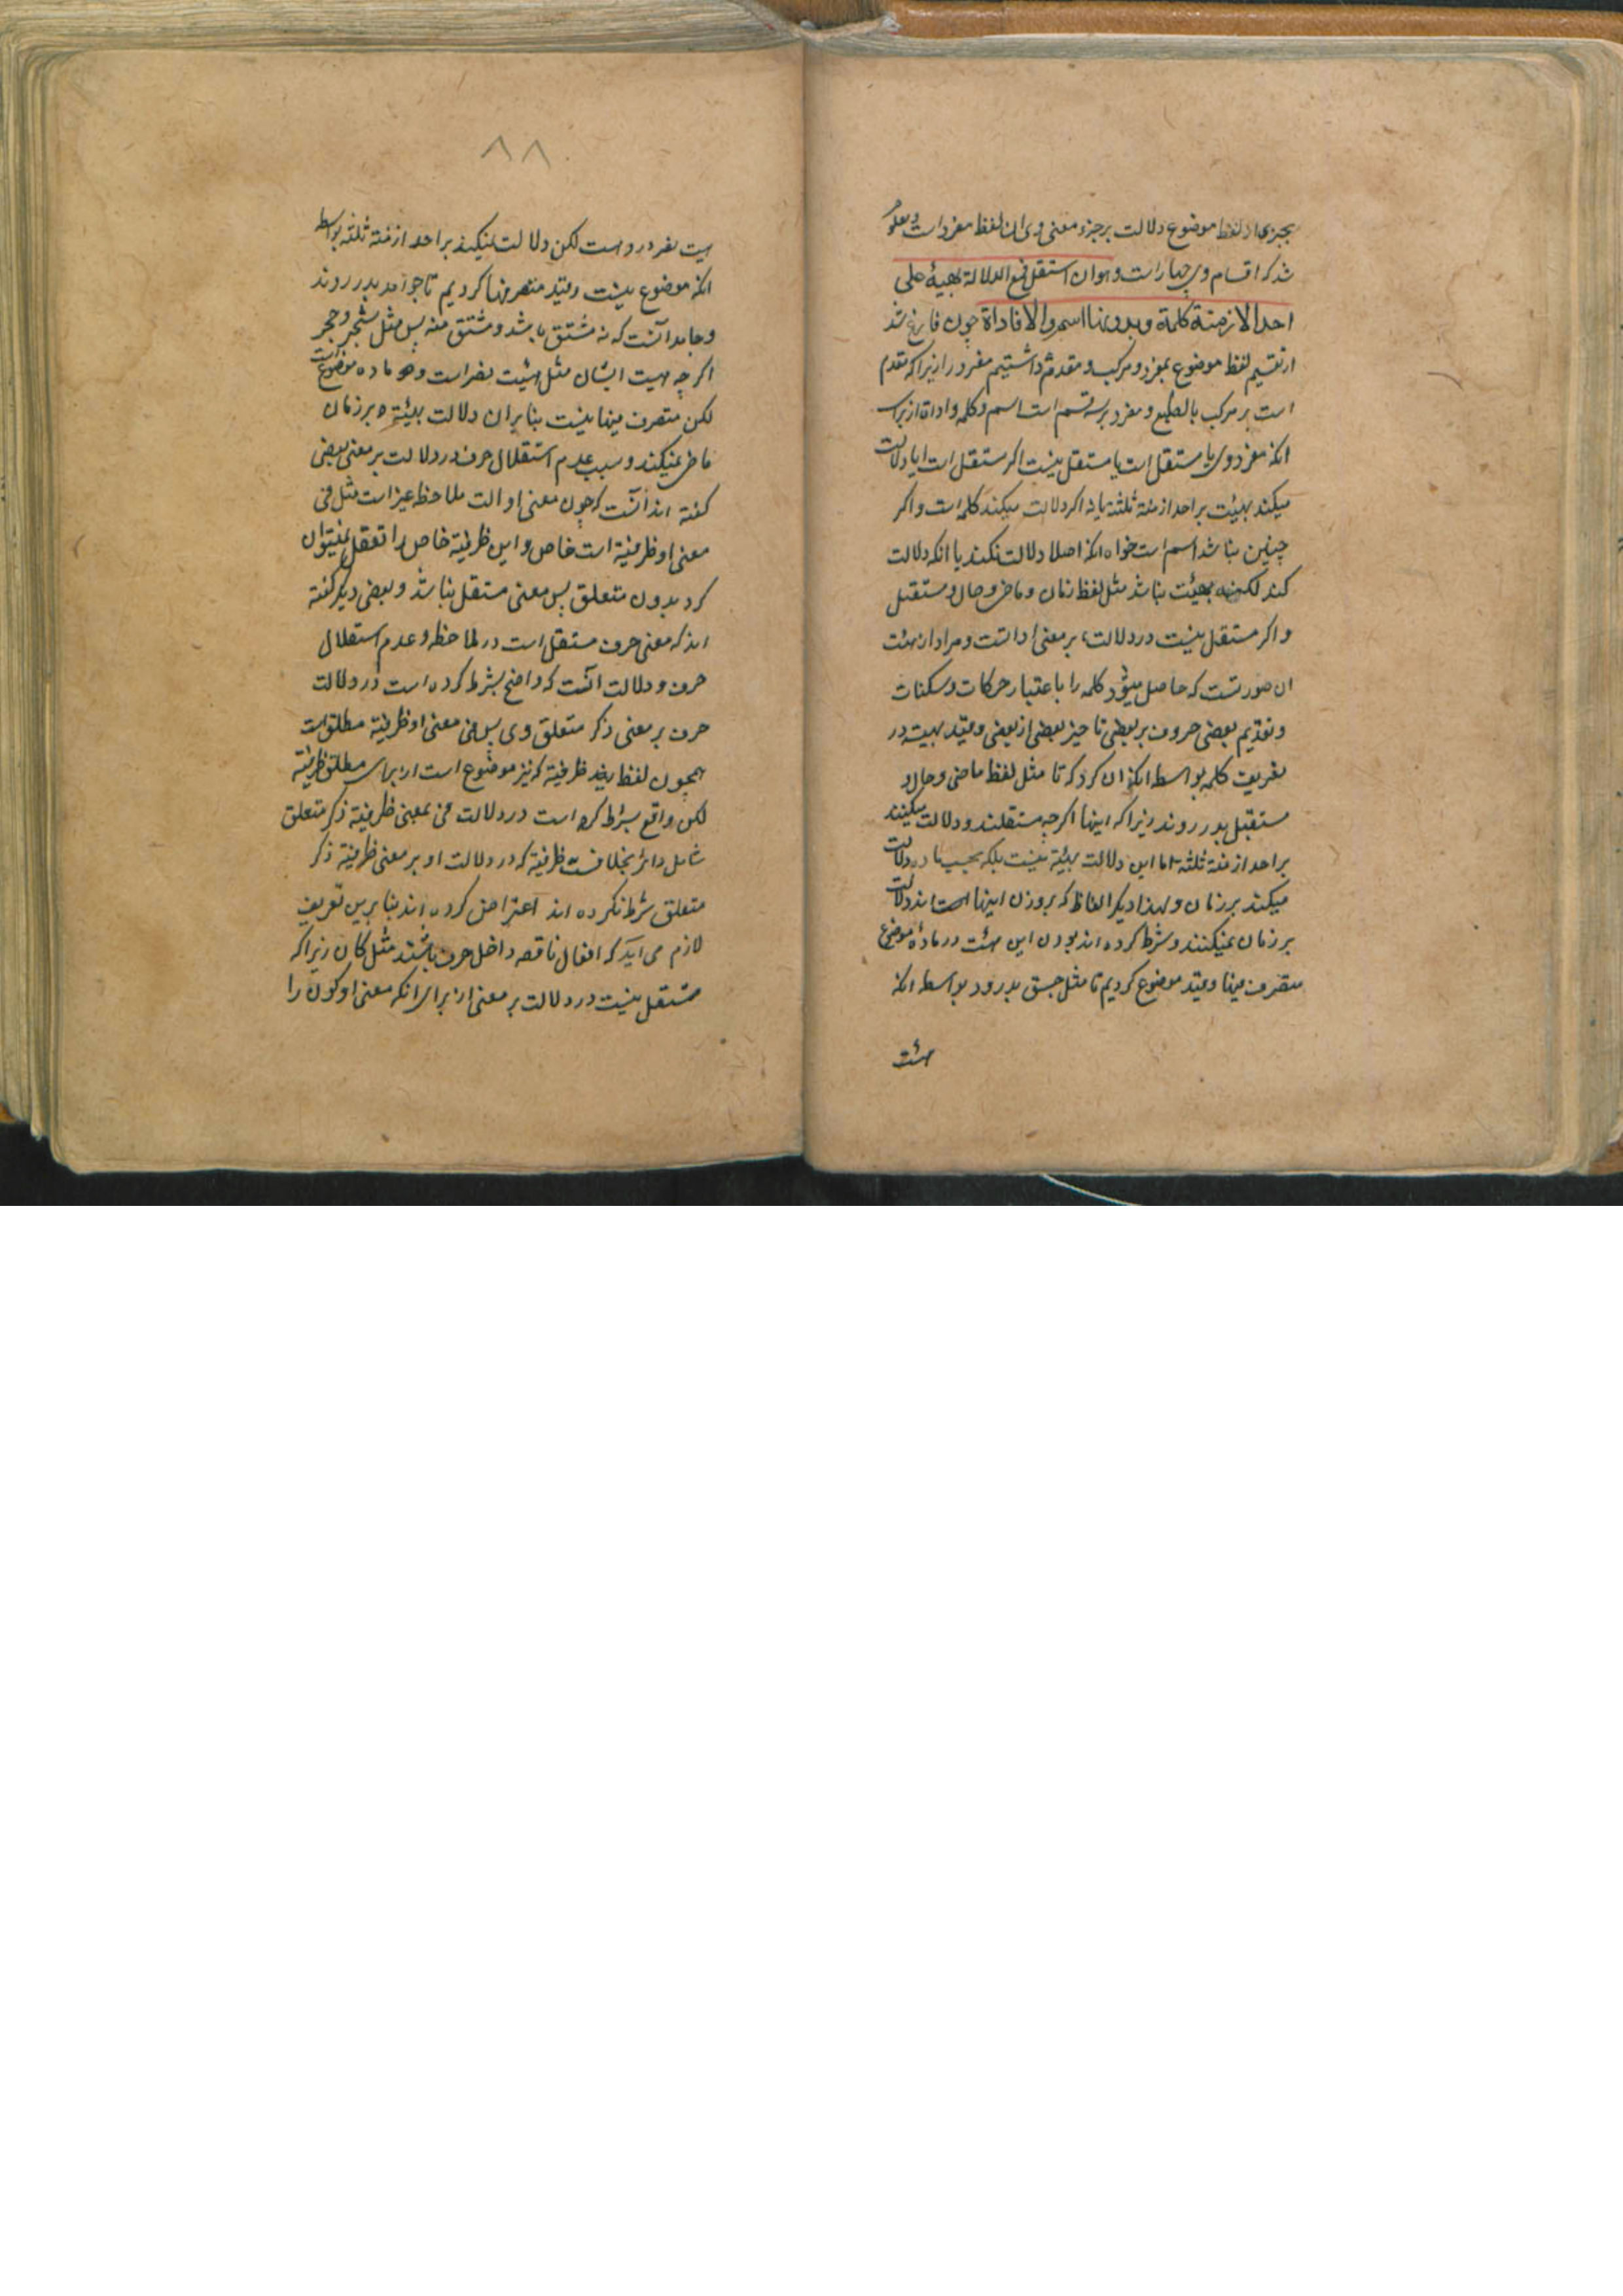 بجزوی از لفظ موضوع دلالت بر جزء معنی وی ان لفظ مفرد است و معلوم
شد که اقسام وی چهار است و هو ان استقل فمع الدلالة بهیئة علی
احد الازمنة کلمة و بدونها اسم و الا فاداة چون فارغ شد
از تقسیم لفظ موضوع بمفرد و مرکب و مقدم داشتیم مفرد را زیرا که مقدم
است بر مرکب بالطبع و مفرد بر سه قسم است اسم و کلمه و اداة از برای
انکه مفرد وی یا مستقل است یا مستقل نیست اگر مستقل است ایا دلالت
میکند بهیئت بر احد ازمنه ثلثه یا نه اکر دلالت میکند کلمه است و اکر
چنین نباشد اسم است خواه انکه اصلا دلالت نکند یا انکه دلالت
کند لکن به هیئت نباشد مثل لفظ زمان و ماضی و حال و مستقبل
و اکر مستقل نیست در دلالت بر معنی اداتست و مراد از هیئت
ان صورتست که حاصل میشود کلمه را باعتبار حرکات و سکنات
و تقدیم بعضی حروف بر بعضی تاخیر بعضی از بعضی و قید بهیئت در
تعریف کلمه بواسطه انکه ان کرد که تا مثل لفظ ماضی و حال و
مستقبل بدر روند زیرا که اینها اکرچه مستقلند و دلالت میکنند
بر احد ازمنه ثلثه اما این دلالت بهیئة نیست بلکه بحسب ماده دلالت
میکند بر زمان و لهذا دیگر الفاظ که بر وزن اینها اند دلالت
بر زمان نمیکنند و شرط کرده اند بودن این هیئت در ماده موضوع
متصرف فیها و قید موضوع کردیم تا مثل جسق بدر رود بواسطه انکه
هیئت
۸۸
هیت نصر در وهست لکن دلالت نمیکند بر احد ازمنه ثلثه بواسطه
انکه موضوع نیست و قید متصرفیها کردیم تا جوامد بدر روند
و جامد آنست که نه مشتق باشد و مشتق منه پس مثل شجر و حجر
اکرچه هیت ایشان مثل هیئت نصر است و ماده موضوع است
لکن متصرف فیها نیست بنابران دلالت بهیئة بر زمان
ماضی نمیکند و سبب عدم استقلال حرف در دلالت بر معنی بعضی
کفته اند آنست که چون معنی او الت ملاحظه غیر است مثل فی
معنی او ظرفیة است خاص و این ظرفیة خاص را تعقل نمیتوان
کرد بدون متعلق پس معنی مستقل نباشد و بعضی دیگر گفته
اند که معنی حرف مستقل است در ملاحظه و عدم استقلال
حرف و دلالت آنست که واضع شرط کرده است در دلالت
حرف بر معنی ذکر متعلق وی پس فی معنی او ظرفیة مطلق است
همچون لفظ ظرفیة که نیز موضوع است از برای مطلق ظرفیة
لکن واقع شرط کرده است در دلالت فی بمعنی ظرفیة ذکر متعلق
شامل دائر بخلاف ظرفیة که در دلالت او بر معنی ظرفیة ذکر
متعلق شرط نکرده اند اعتراض کرده اند بنا برین تعریف
لازم می آید که افعال ناقصه داخل حرف باشند مثل کان زیرا که
مستقل نیست در دلالت بر معنی از برای انکه معنی او کون را